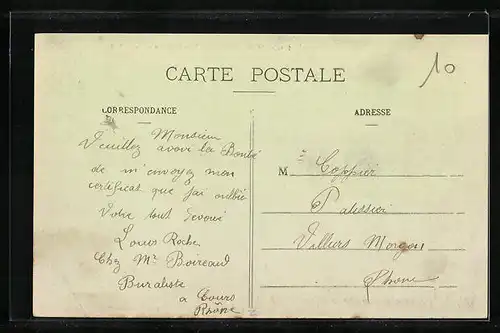 CARTE POSTALE
10
CORRESPONDANCE
Monsieur
Veuillez avoir la Bonté
de m'envoyez mon
certificat que jai oublié
Votre tout Devoué
Louis Roche
Chez Mr Boireaud
Buraliste
a Cours
Rhône
ADRESSE
M Coppier
Patissier
Villiers Morgon
Rhone